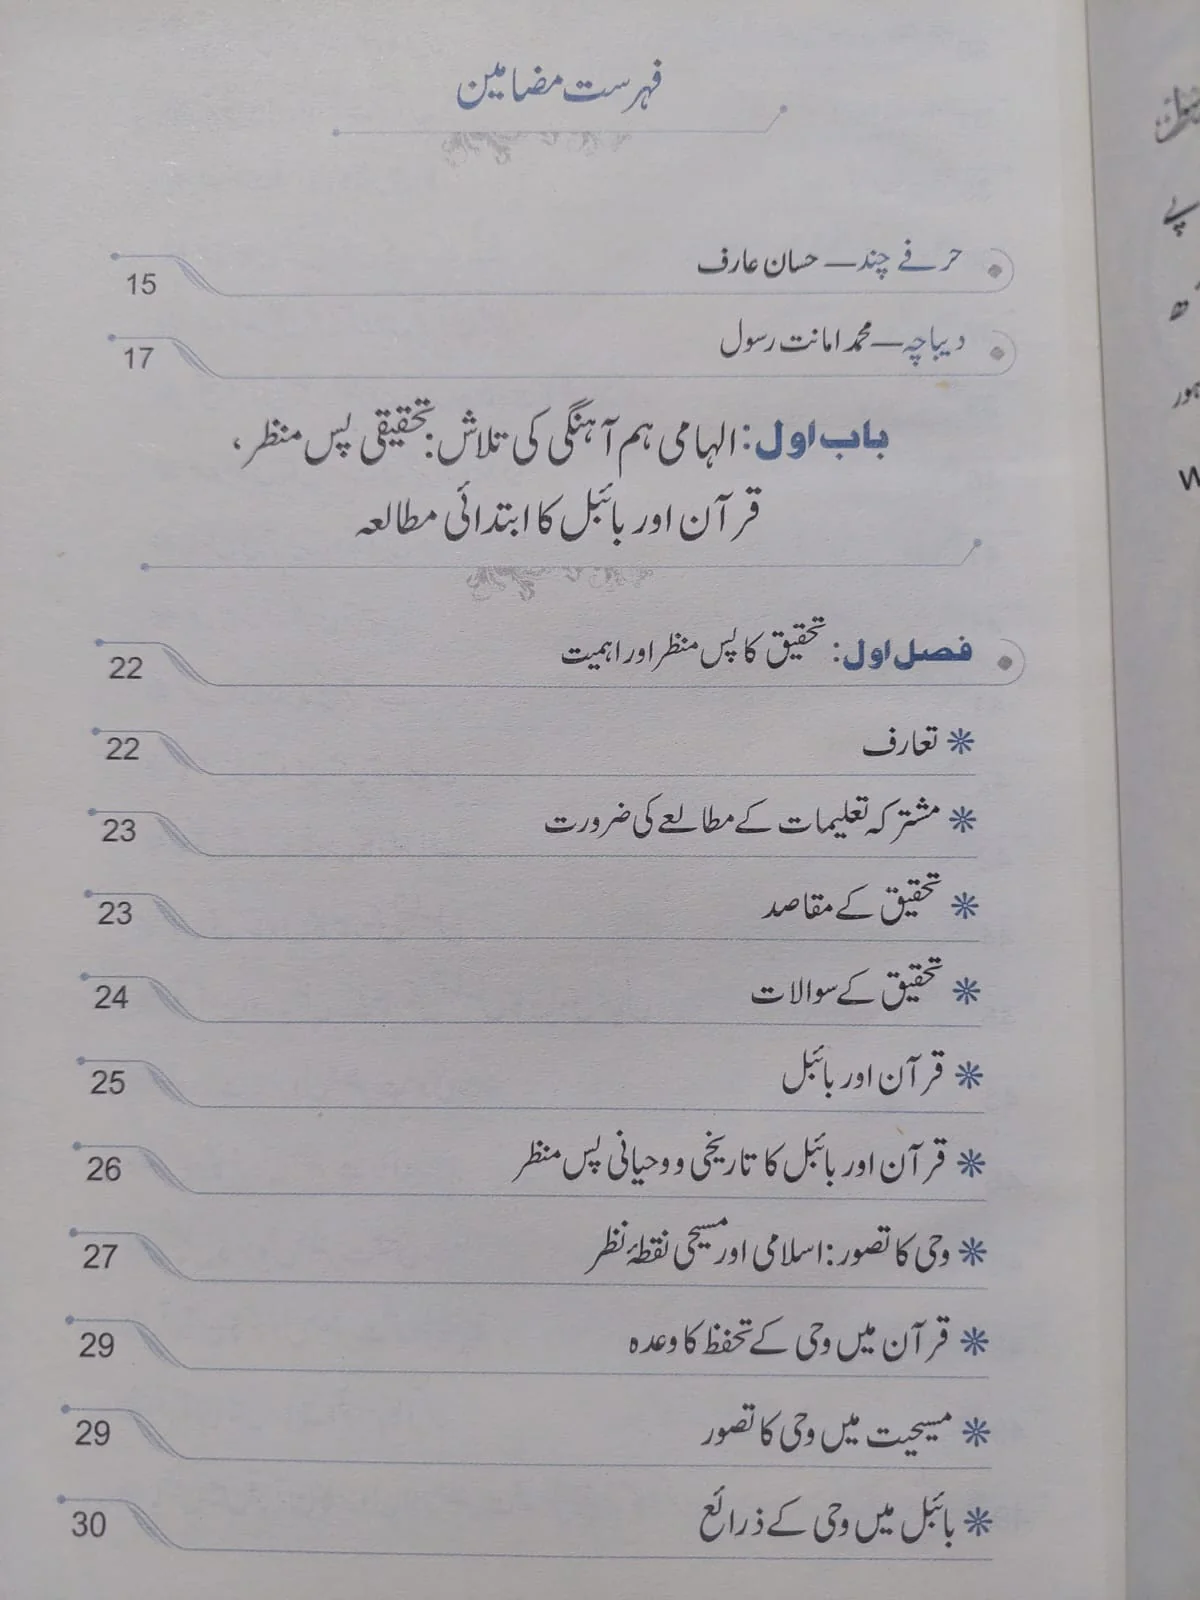 فہرست مضامین
حرفے چند — حسان عارف 15
دیباچہ — محمد امانت رسول 17
باب اول: الہامی ہم آہنگی کی تلاش: تحقیقی پس منظر،
قرآن اور بائبل کا ابتدائی مطالعہ
فصل اول: تحقیق کا پس منظر اور اہمیت 22
تعارف 22
مشترکہ تعلیمات کے مطالعے کی ضرورت 23
تحقیق کے مقاصد 23
تحقیق کے سوالات 24
قرآن اور بائبل 25
قرآن اور بائبل کا تاریخی و وحیانی پس منظر 26
وحی کا تصور: اسلامی اور مسیحی نقطۂ نظر 27
قرآن میں وحی کے تحفظ کا وعدہ 29
مسیحیت میں وحی کا تصور 29
بائبل میں وحی کے ذرائع 30